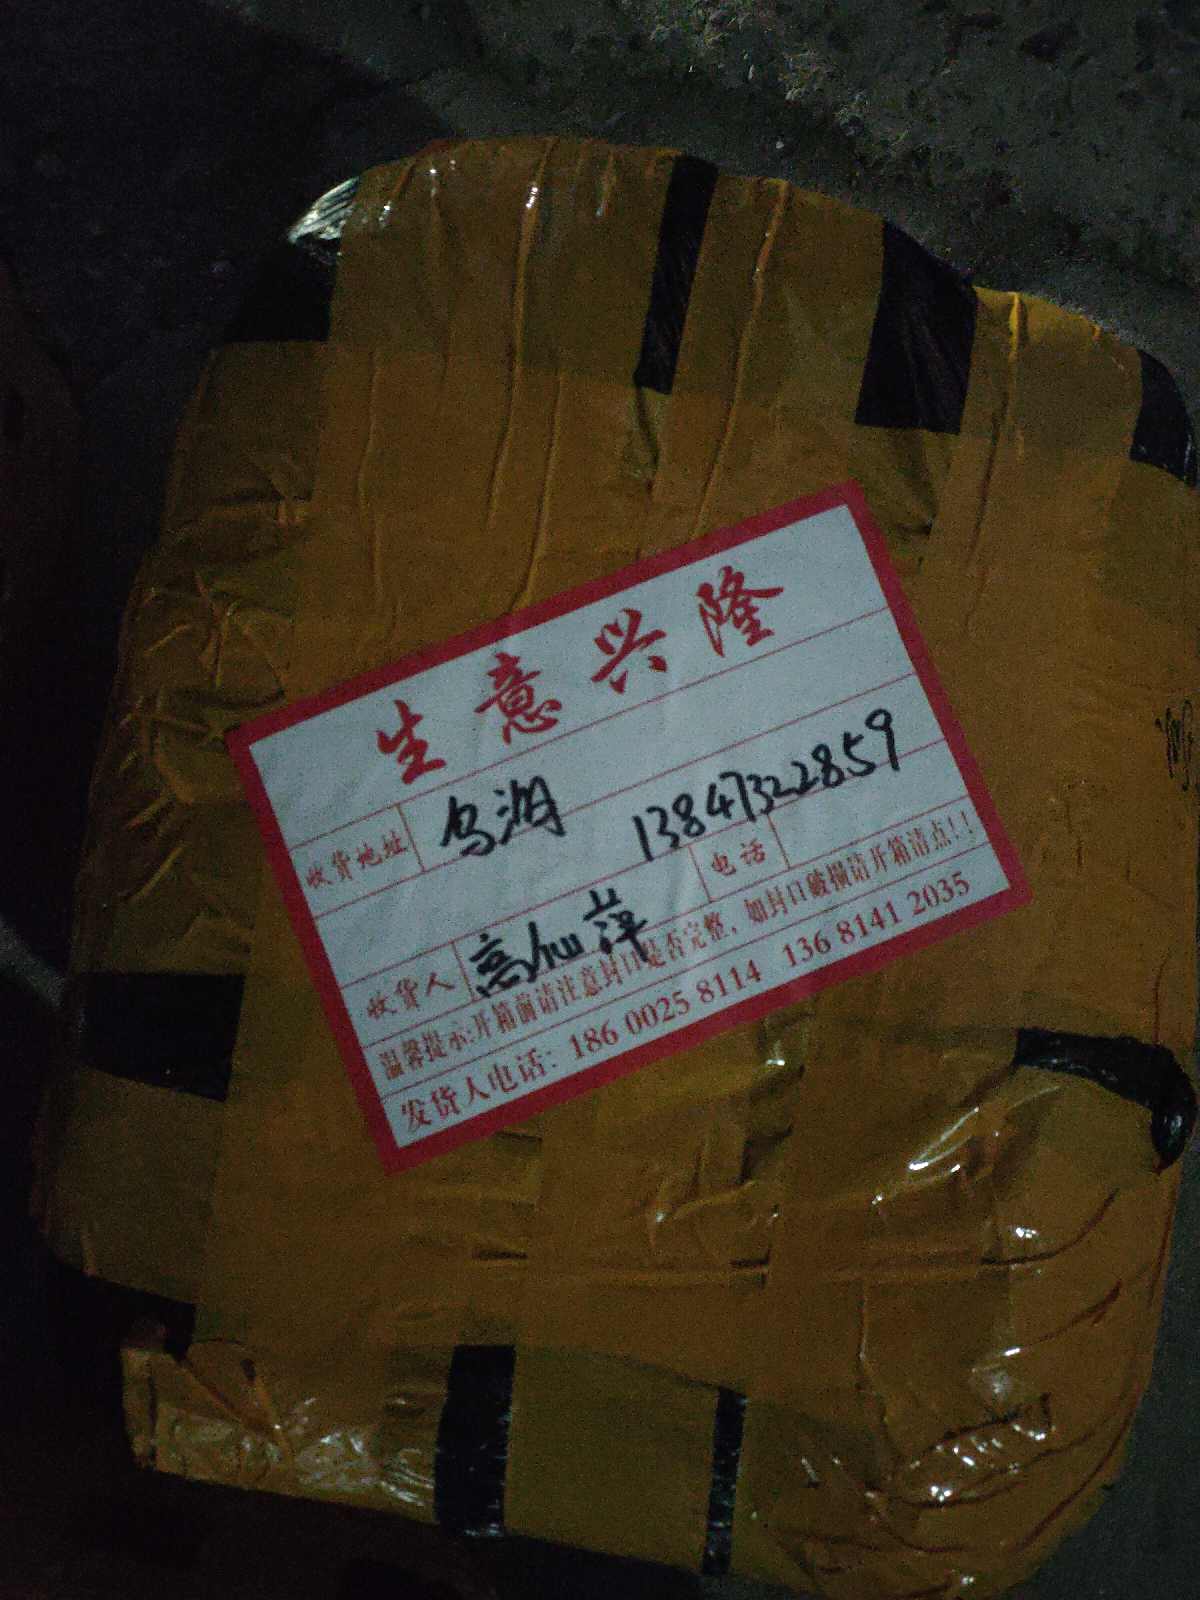 生意兴隆
收货地址 乌海
13847322859
收货人 高仙萍 电话
温馨提示:开箱前请注意封口是否完整，如封口破损请开箱清点!!
发货人电话: 186 0025 8114 136 8141 2035